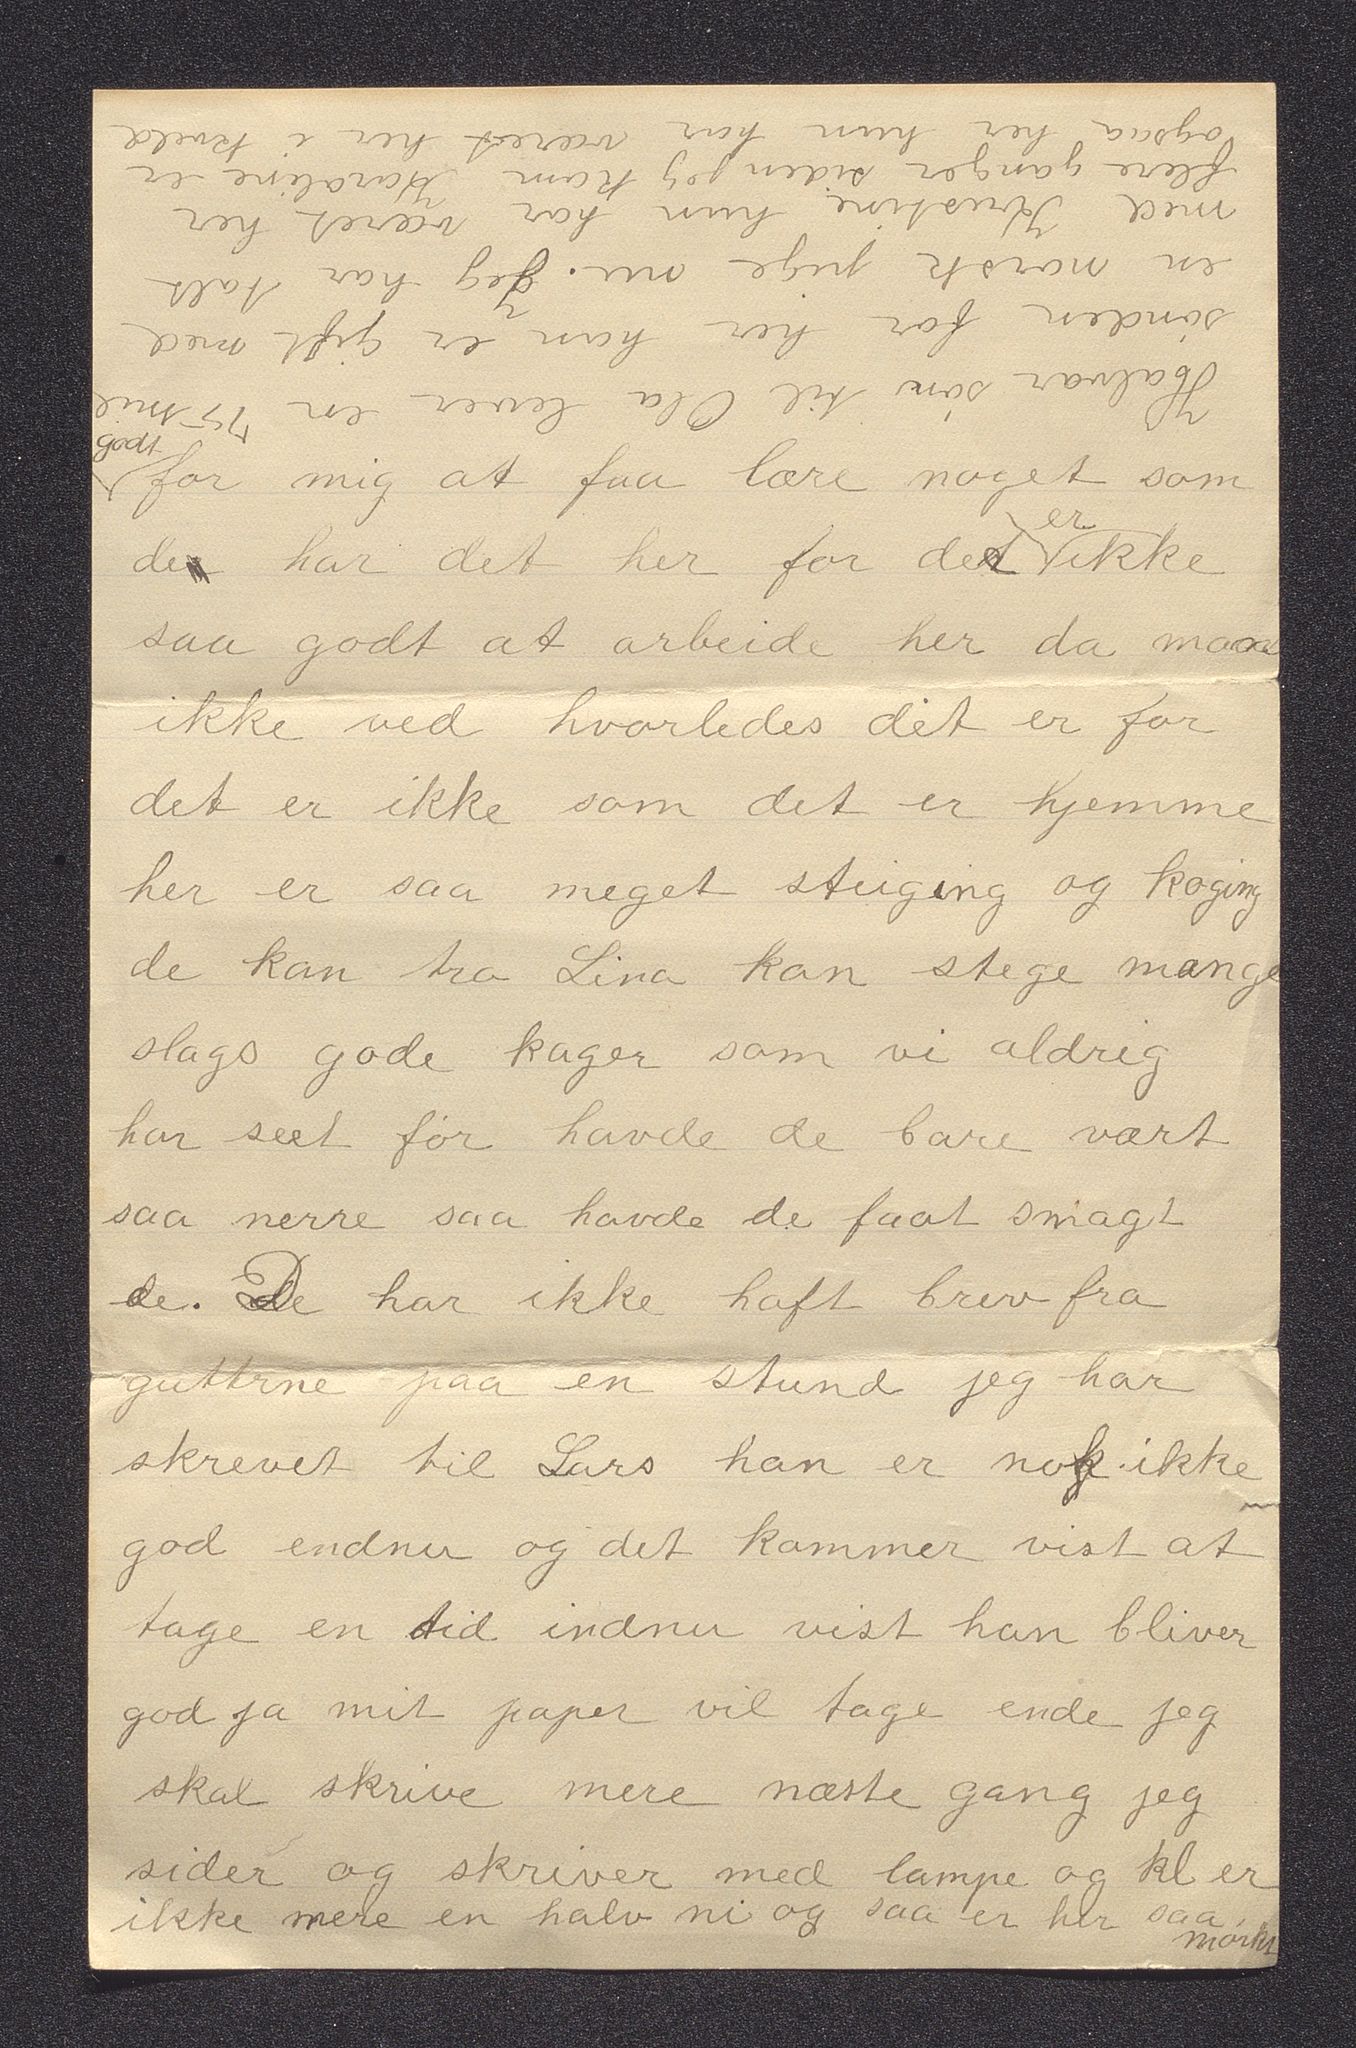 godt
for mig at faa lære noget som
de har det her for det er ikke
saa godt at arbeide her da man
ikke ved hvorledes det er for
det er ikke som det er hjemme
her er saa meget stiiging og koging
de kan tro Lina kan stege mange
slags gode kager som vi aldrig
har seet før havde de bare vært
saa nerre saa havde de faat smagt
de. De har ikke haft brev fra
guttrne paa en stund jeg har
skrevet til Lars han er nok ikke
god endnu og det kommer vist at
tage en tid indnu vist han bliver
god ja mit paper vil tage ende jeg
skal skrive mere næste gang jeg
sider og skriver med lampe og kl er
ikke mere en halv ni og saa er her saa
mørkt
Halvar søn til Ola lever en 75 mil
sønden for her han er gift med
en norsk pige nu. Jeg har talt
med Kristine hun har været her
flere ganger siden jeg kom Karaline er
ogsaa her hun har været her i kveld